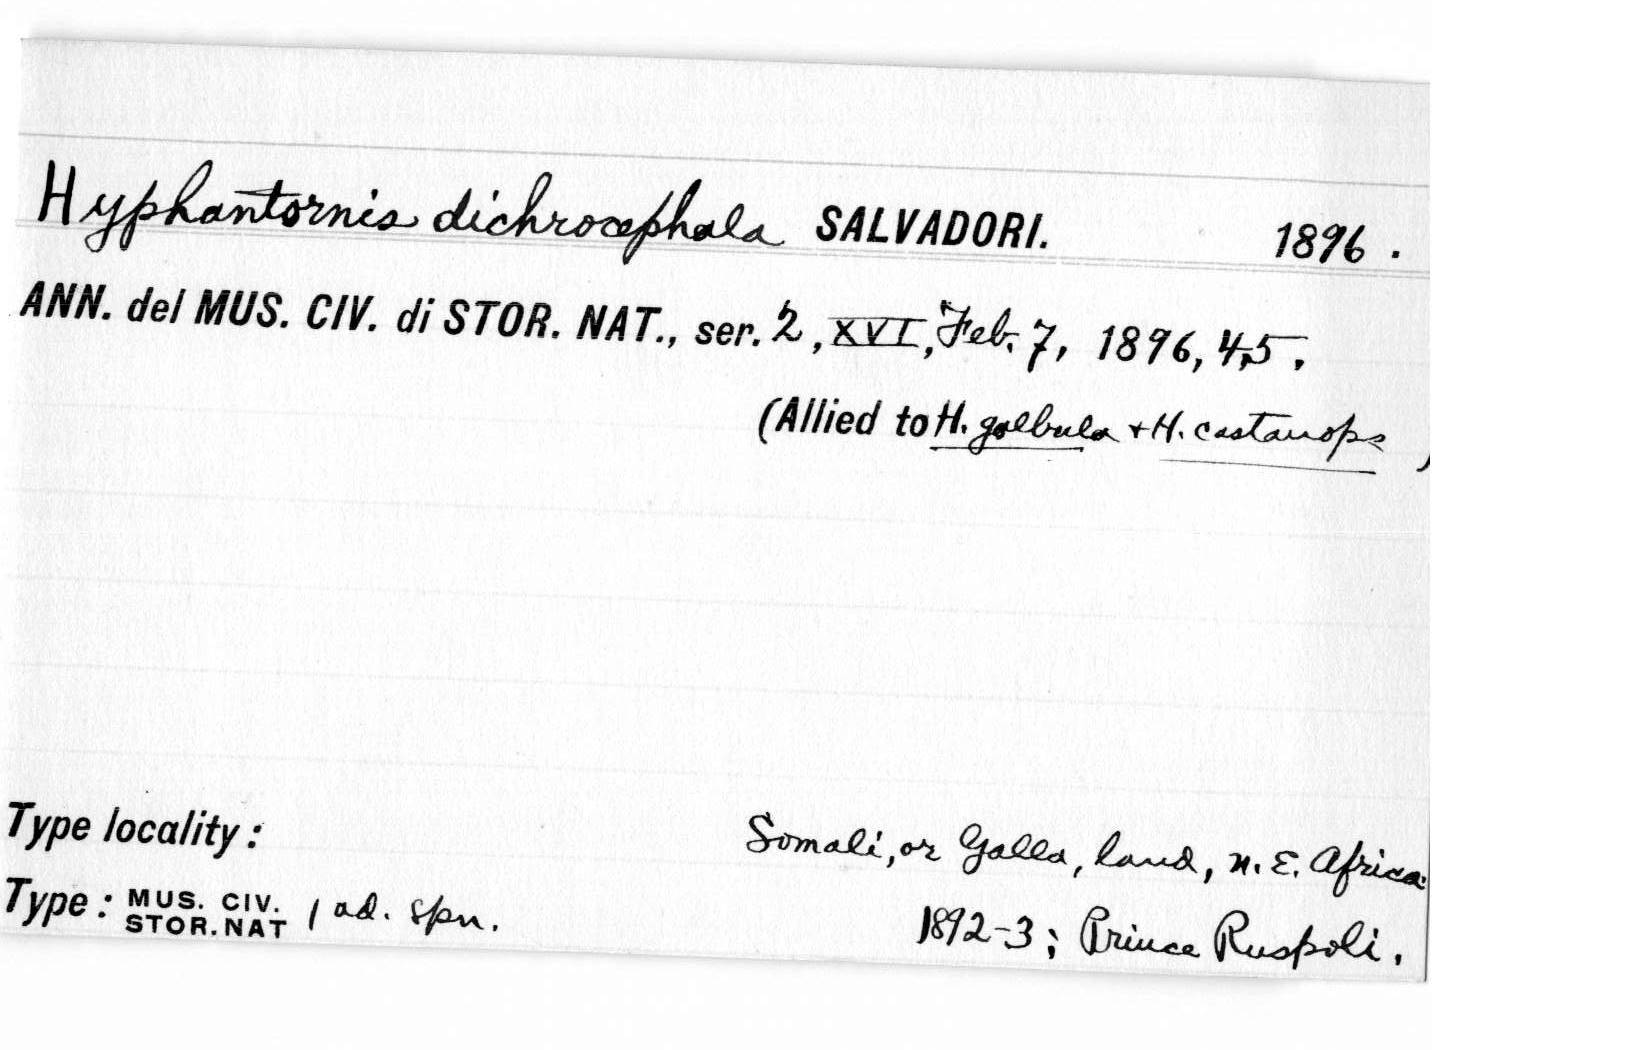 Hyphantornis dichrocephala SALVADORI. 1896.
ANN. del MUS. CIV. di STOR. NAT., ser. 2, XVI, Feb. 7, 1896, 45.
(Allied to H. galbula + H. castanops)
Type locality: Somali, or Galla, land, n. E. Africa.
Type: MUS. CIV. STOR. NAT 1 ad. spn. 1892-3; Prince Ruspoli.